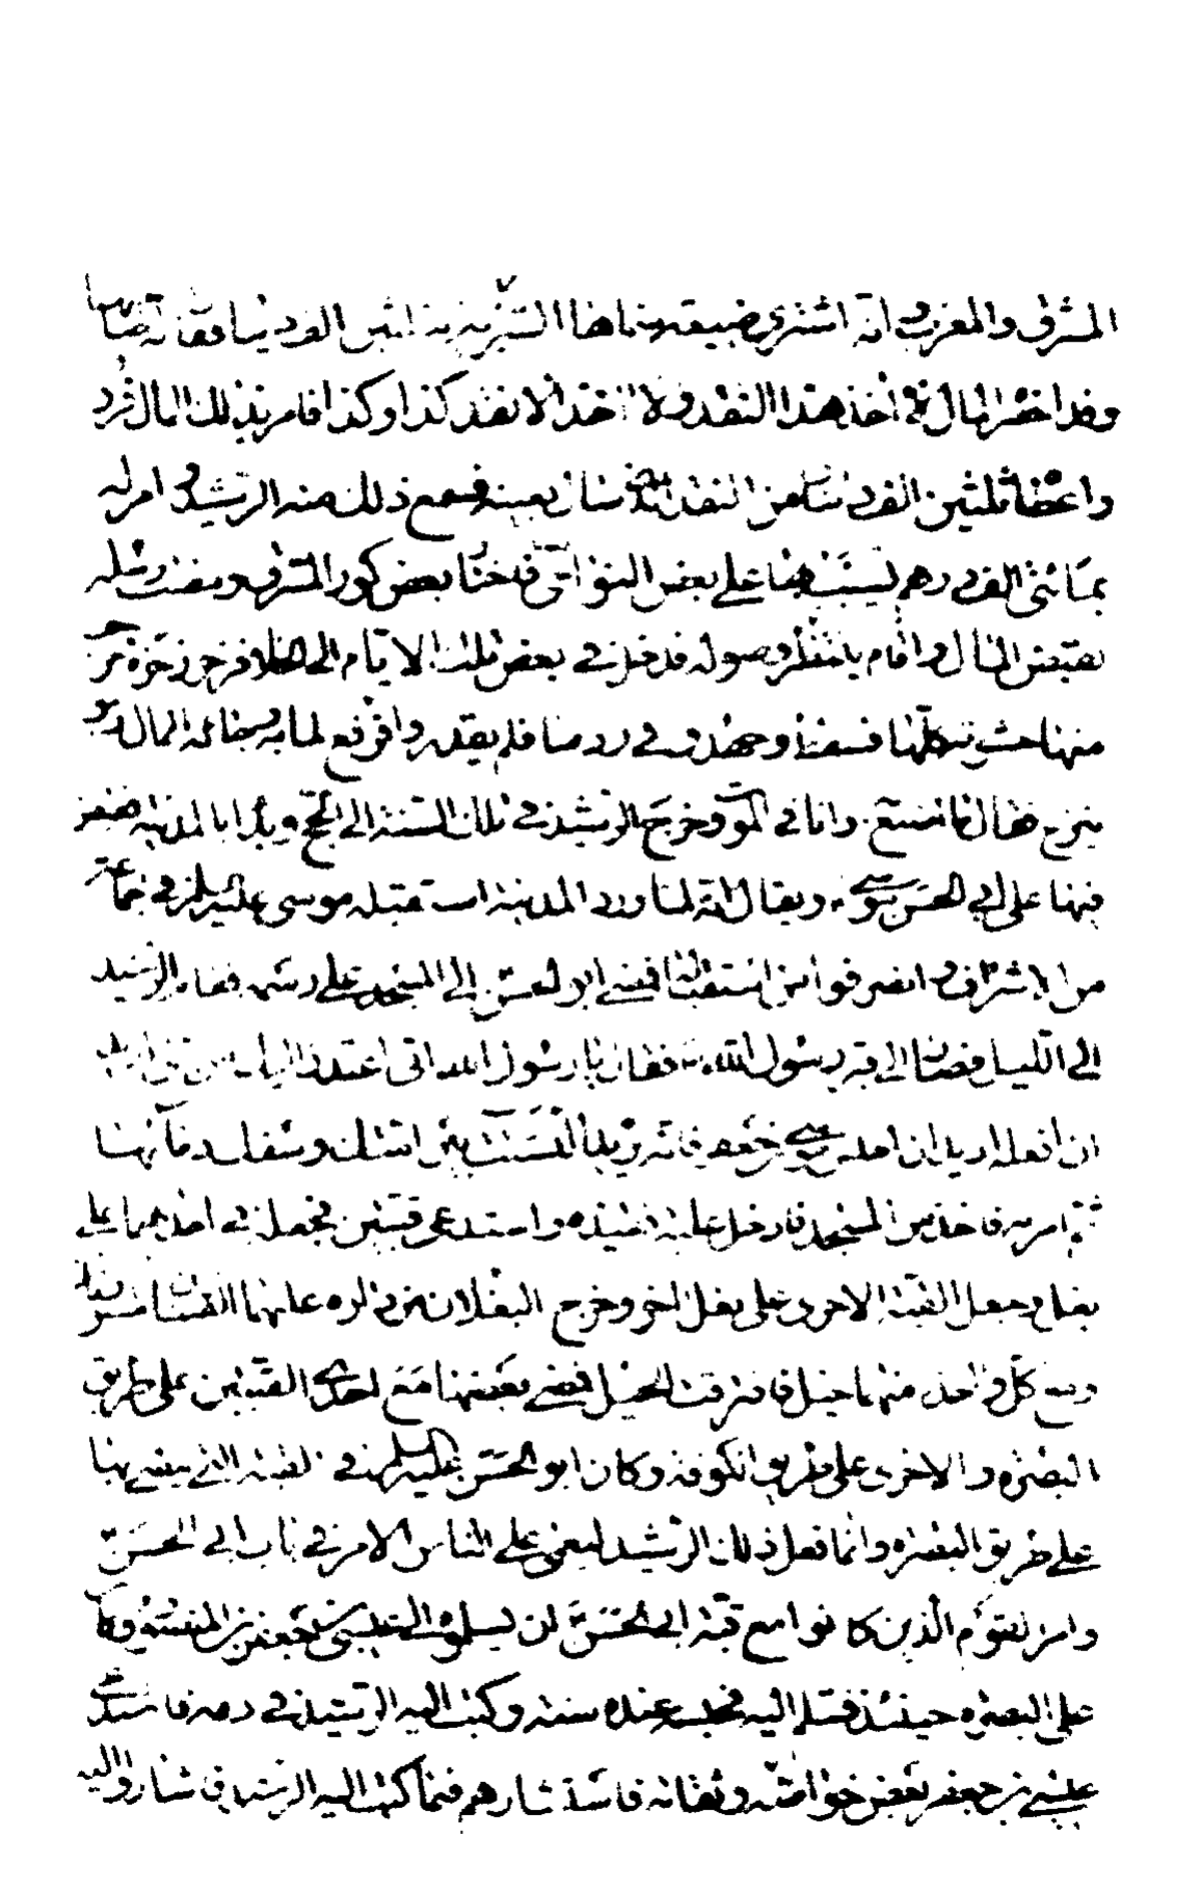 المشرق والمغرب وانه اشترى ضيعة سماها اليسيرية بثلثين الف دينار فقال له صاحبها
وقد احضر المال لا آخذ هذا النقد ولا آخذ الا نقد كذا وكذا فامر بذلك المال فرد
واعطاه ثلثين الف دينار من النقد الذي سال بعينه فسمع ذلك منه الرشيد وامر له
بمائتي الف درهم تسبب بها على بعض النواحي فاختار بعض كور المشرق ومضت رسله
لقبض المال واقام ينتظر وصوله فدخل في بعض تلك الايام الى الخلا فزحر زحرة خرجت
منها حشوته كلها فسقط وجهدوا في ردها فلم يقدروا فوقع لما به وجاءه المال وهو
ينزع فقال ما اصنع به وانا في الموت وخرج الرشيد في تلك السنة الى الحج وبدا بالمدينة فقبض
فيها على ابي الحسن موسى ويقال انه لما ورد المدينة استقبله موسى عليه السلم في جماعة
من الاشراف وانصرفوا من استقباله فمضى ابو الحسن الى المسجد على رسمه فقام الرشيد
الى الليل فصار الى قبر رسول الله فقال يا رسول الله اني اعتذر اليك من شيء اريد
ان افعله اريد ان احبس موسى بن جعفر فانه يريد التشتت بين امتك وسفك دمائها
ثم امر به فاخذ من المسجد فادخل عليه فقيده واستدعى قبتين فجعله في احديهما على
بغل وجعل القبة الاخرى على بغل اخر وخرج البغلان من داره عليهما القبتان مستورتان
ومع كل واحد منهما خيل فافترقت الخيل فمضى بعضها مع احدى القبتين على طريق
البصرة والاخرى على طريق الكوفة وكان ابو الحسن عليه السلم في القبة التي مضى بها
على طريق البصرة وانما فعل ذلك الرشيد ليعمي على الناس الامر في باب ابي الحسن
وامر القوم الذين كانوا مع قبة ابي الحسن ان يسلموه الى عيسى بن جعفر بن المنصور وكان
على البصرة حينئذ فسلم اليه فحبسه عنده سنة وكتب اليه الرشيد في دمه فاستدعى
عيسى بن جعفر بعض خواصه وثقاته فاستشارهم فيما كتب اليه الرشيد فاشاروا اليه